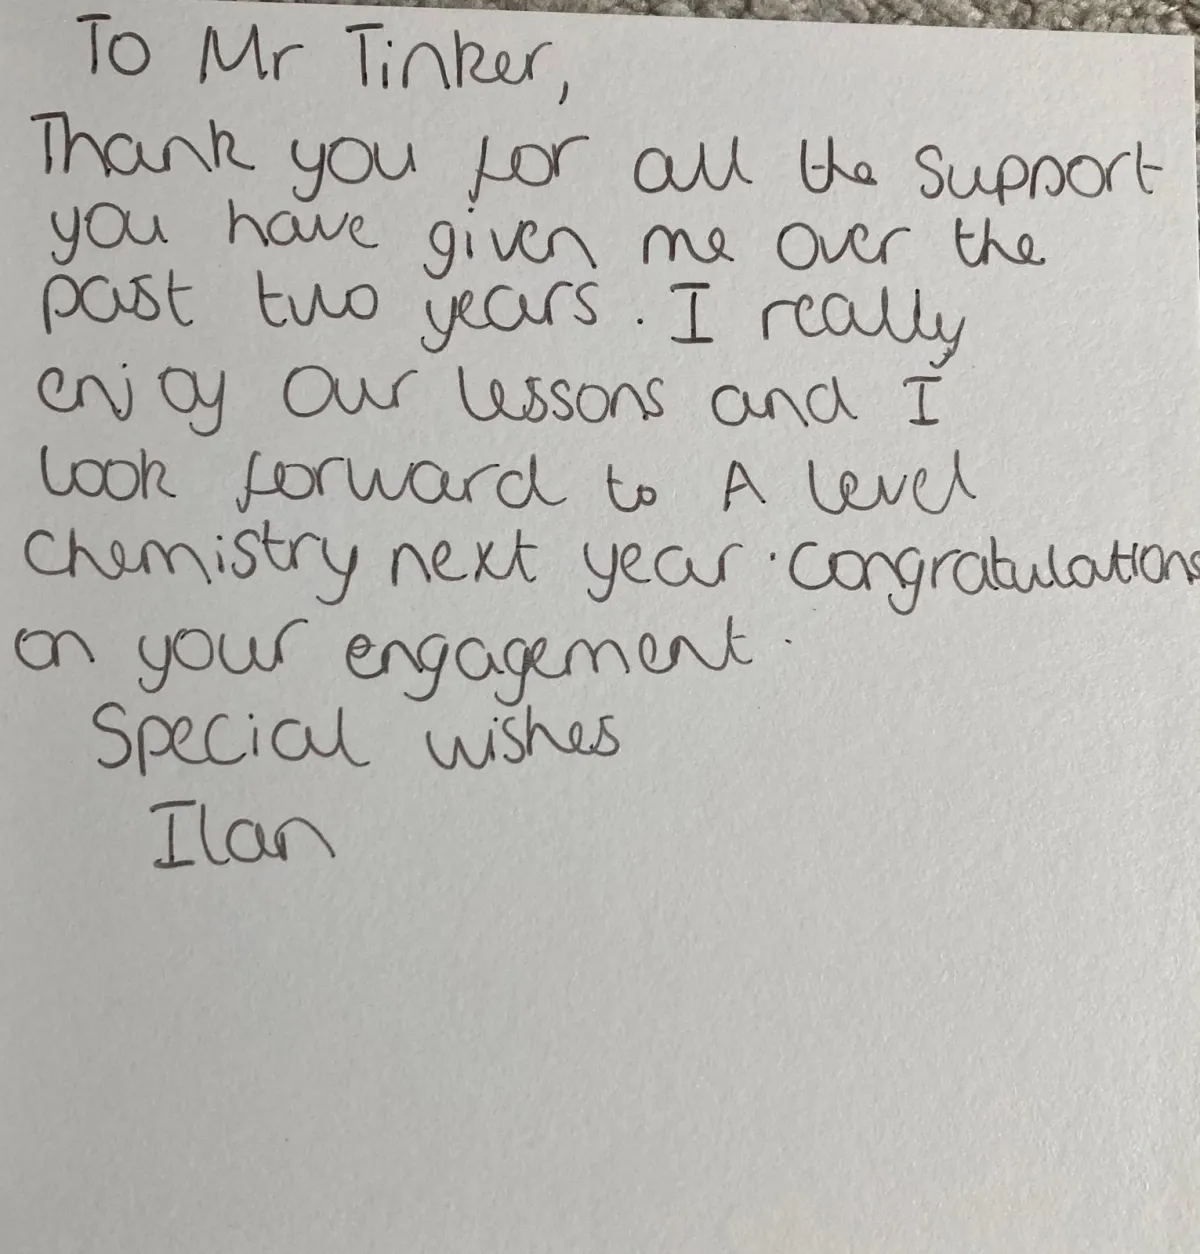 To Mr Tinker,
Thank you for all the support
you have given me over the
past two years. I really
enjoy our lessons and I
look forward to A level
Chemistry next year. Congratulations
on your engagement.
Special wishes
Ilan